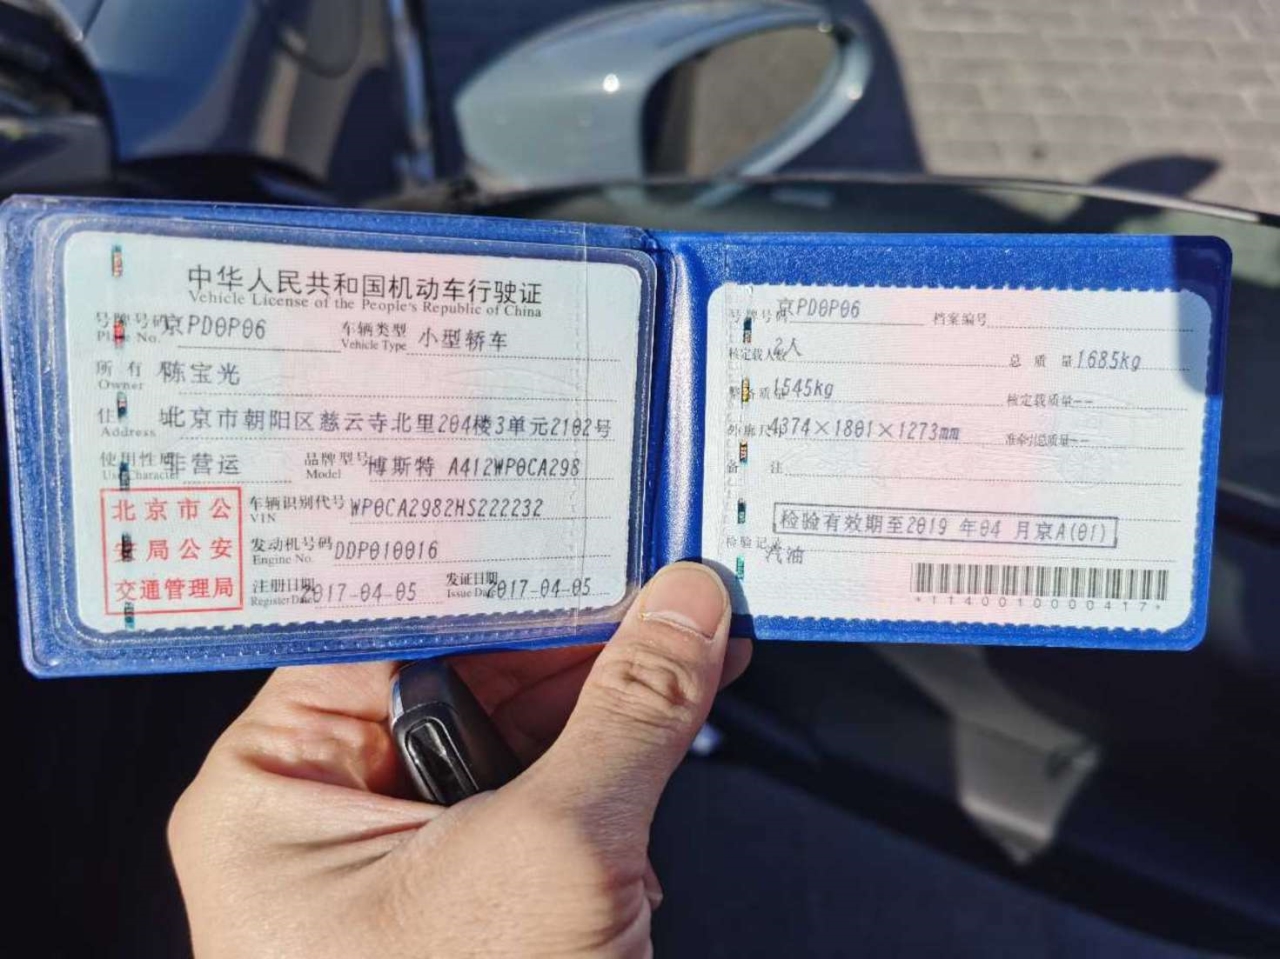 中华人民共和国机动车行驶证
Vehicle License of the People's Republic of China
号牌号码 京PD0P06 车辆类型 小型轿车
Plate No. Vehicle Type
所有 陈宝光
Owner
住 北京市朝阳区慈云寺北里204楼3单元2102号
Address
使用性质 非营运 品牌型号 博斯特 A412WP0CA298
Use Character Model
北京市公
安局公安
交通管理局
车辆识别代号 WP0CA2982HS222232
VIN
发动机号码 DDP010016
Engine No.
注册日期 2017-04-05 发证日期 2017-04-05
Register Date Issue Date
号牌号码 京PD0P06 档案编号
核定载人数 2人 总质量 1685kg
整备质量 1545kg 核定载质量 --
外廓尺寸 4374×1801×1273mm 准牵引总质量 --
备注
检验有效期至2019 年04 月京A(01)
检验记录
汽油
*1140010000417*